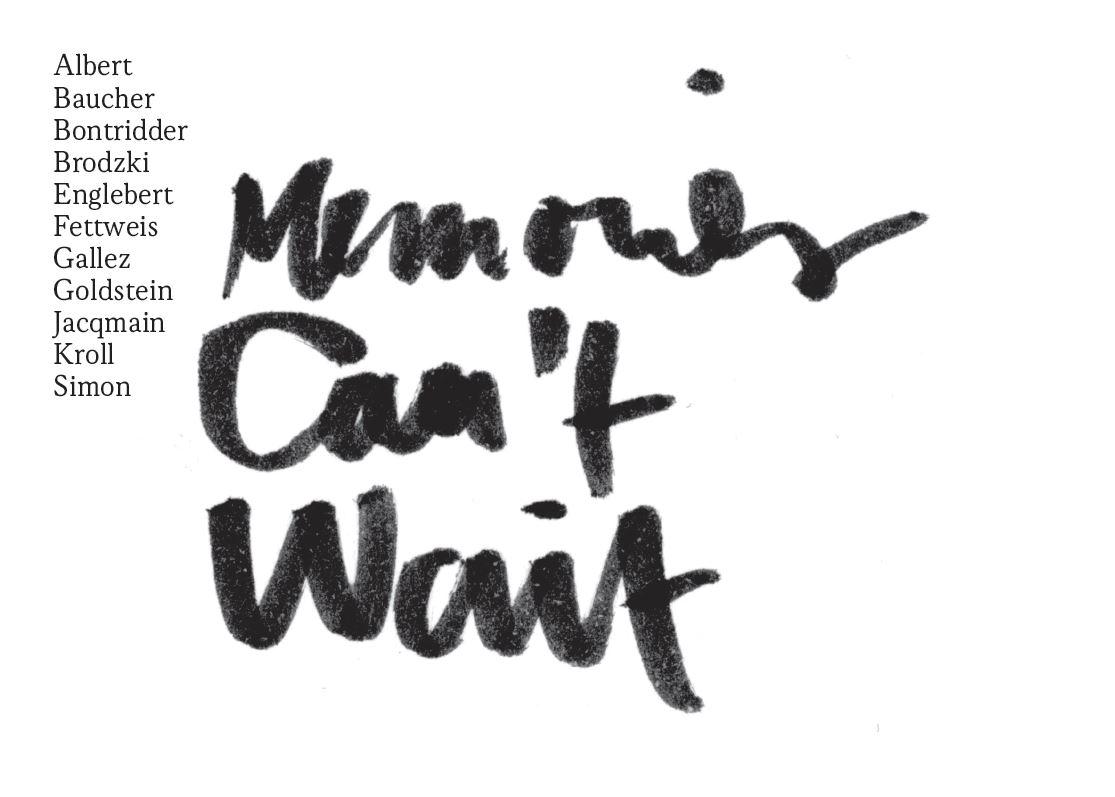 Albert
Baucher
Bontridder
Brodzki
Englebert
Fettweis
Gallez
Goldstein
Jacqmain
Kroll
Simon
Memories
Can't
Wait